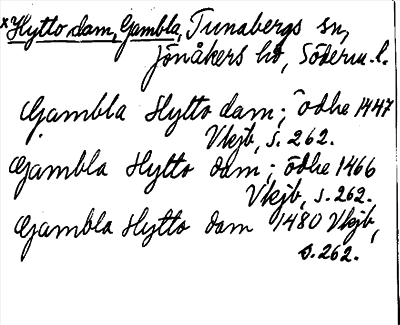 ×Hytto dam, Gambla, Tunabergs sn,
Jönåkers hd, Söderm. l.
Gambla Hytto dam; ödhe 1447
Vkjb, s. 262.
Gambla Hytto dam; ödhe 1466
Vkjb, s. 262.
Gambla Hytto dam 1480 Vkjb,
s. 262.